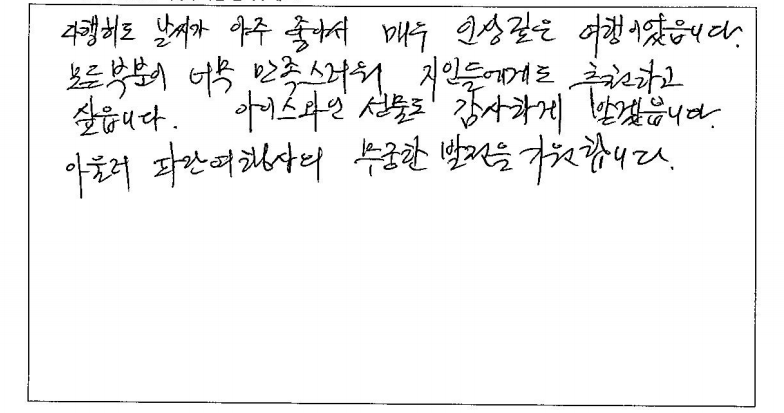 다행히도 날씨가 아주 좋아서 매우 인상깊은 여행이었읍니다.
모든부분이 너무 만족스러워 지인들에게도 추천하고
싶읍니다. 아이스와인 선물도 감사하게 받겠읍니다.
아울러 파란여행사의 무궁한 발전을 기원합니다.